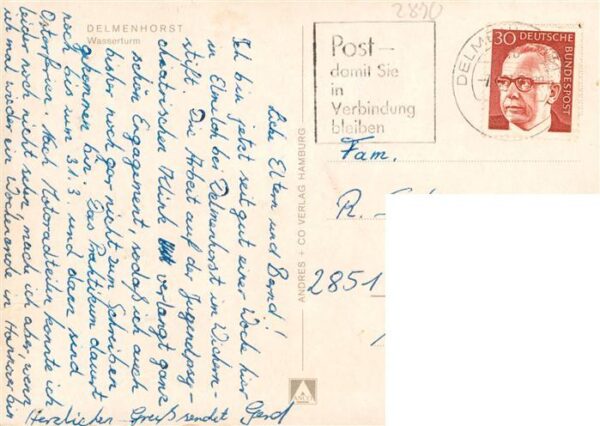 2890
DELMENHORST
Wasserturm
Post –
damit Sie
in
Verbindung
bleiben
DELME
30 DEUTSCHE
BUNDESPOST
Liebe Eltern und Bernd!
Ich bin jetzt seit gut einer Woche hier
in Elmeloh bei Delmenhorst im Wichern-
stift. Die Arbeit auf der Jugendpsy-
chiatrischen Klinik verlangt ganz
schön Engagement, sodaß ich auch
bisher noch gar nicht zum Schreiben
gekommen bin. Das Praktikum dauert
noch bis zum 31.3. und dann sind
Osterferien. Nach Motorradteilen konnte ich
leider noch nicht sehen, mache ich aber, wenn
ich mal wieder ein Wochenende in Hannover bin
Herzlichen Gruß sendet Gerd
ANDRES + CO VERLAG HAMBURG
ANCO
Fam.
R.
2851